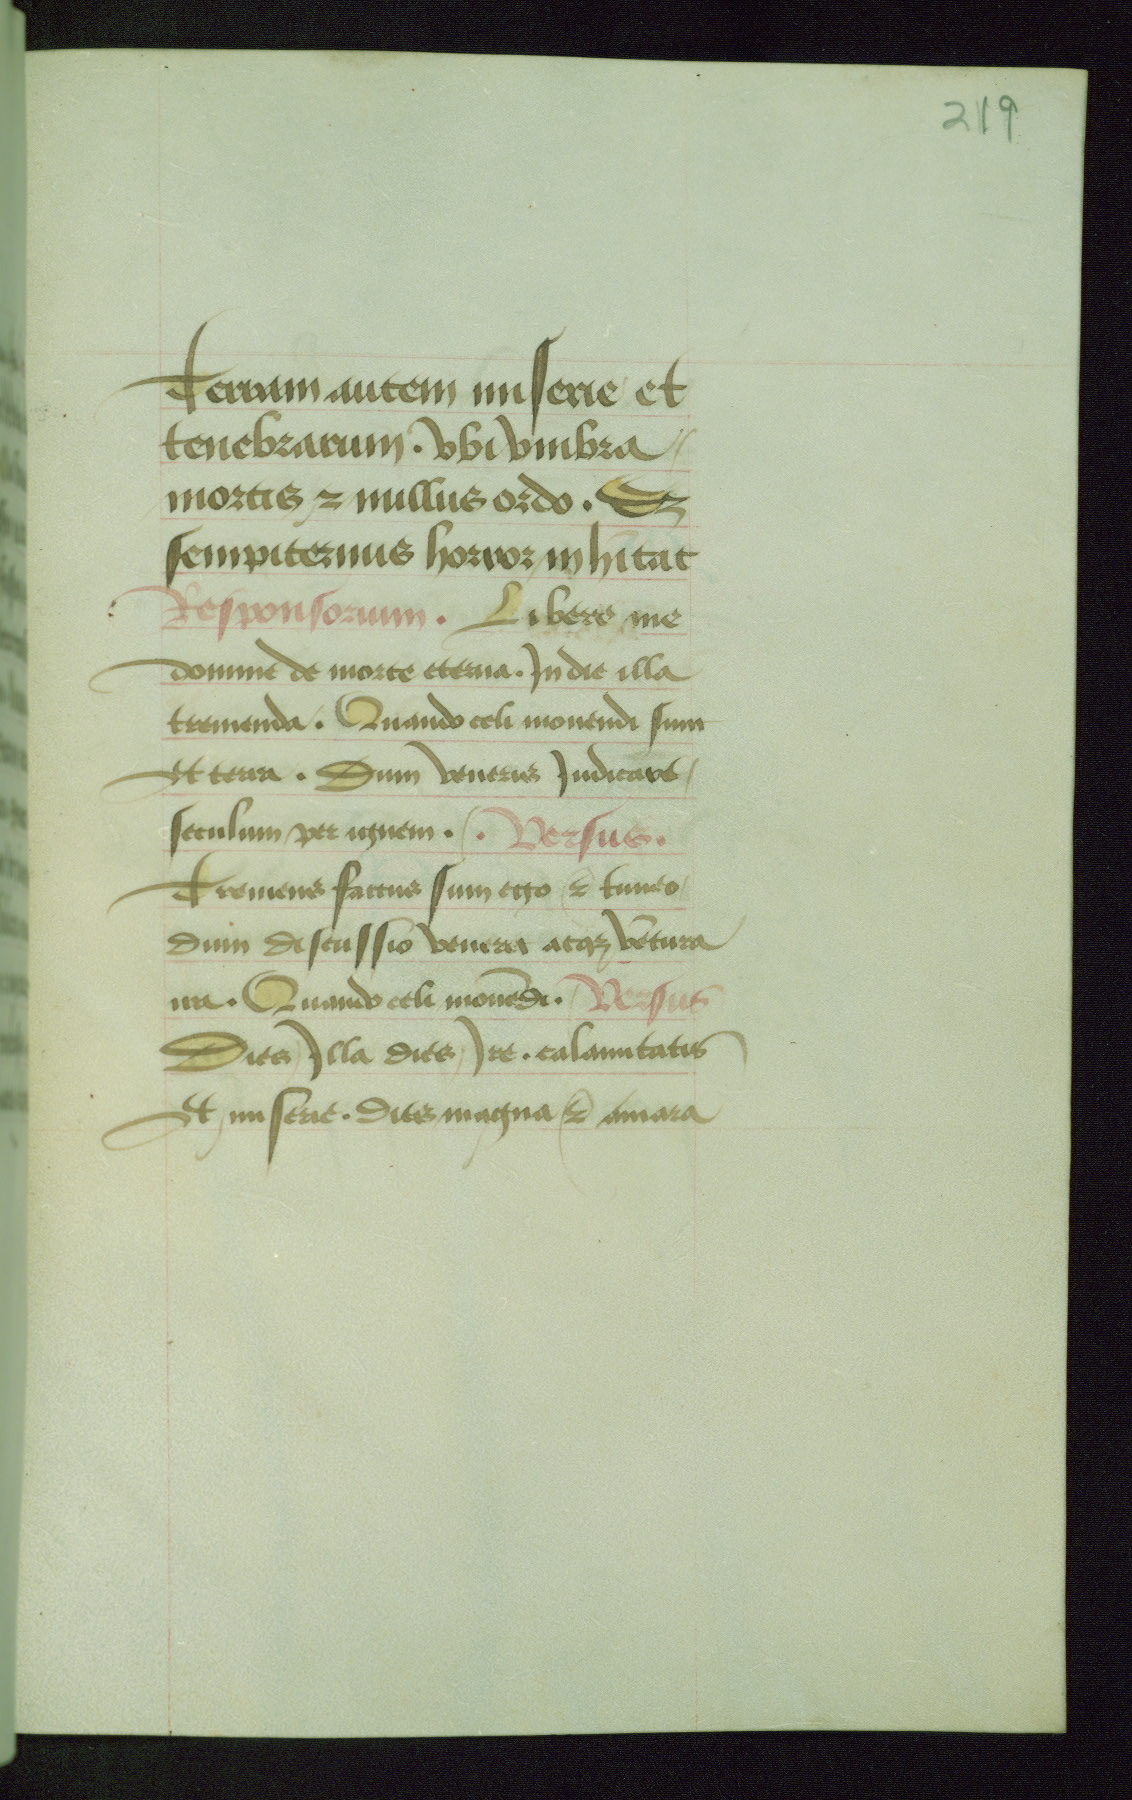 219
Terram autem miserie et
tenebrarum . vbi vmbra
mortis ⁊ nullus ordo . Sꝫ
sempiternus horror inhītat
Responsorium . Libera me
domine de morte eterna . In die illa
tremenda . Quando celi mouendi sunt
Et terra . Dum veneris Iudicare
seculum per ignem . . Versus .
Tremens factus sum ego ⁊ timeo
dum discussio venerit atqꝫ vētura
ira . Quando celi mouēdi . Versus
Dies Illa dies Ire . calamitatis
Et miserie . dies magna ⁊ amara